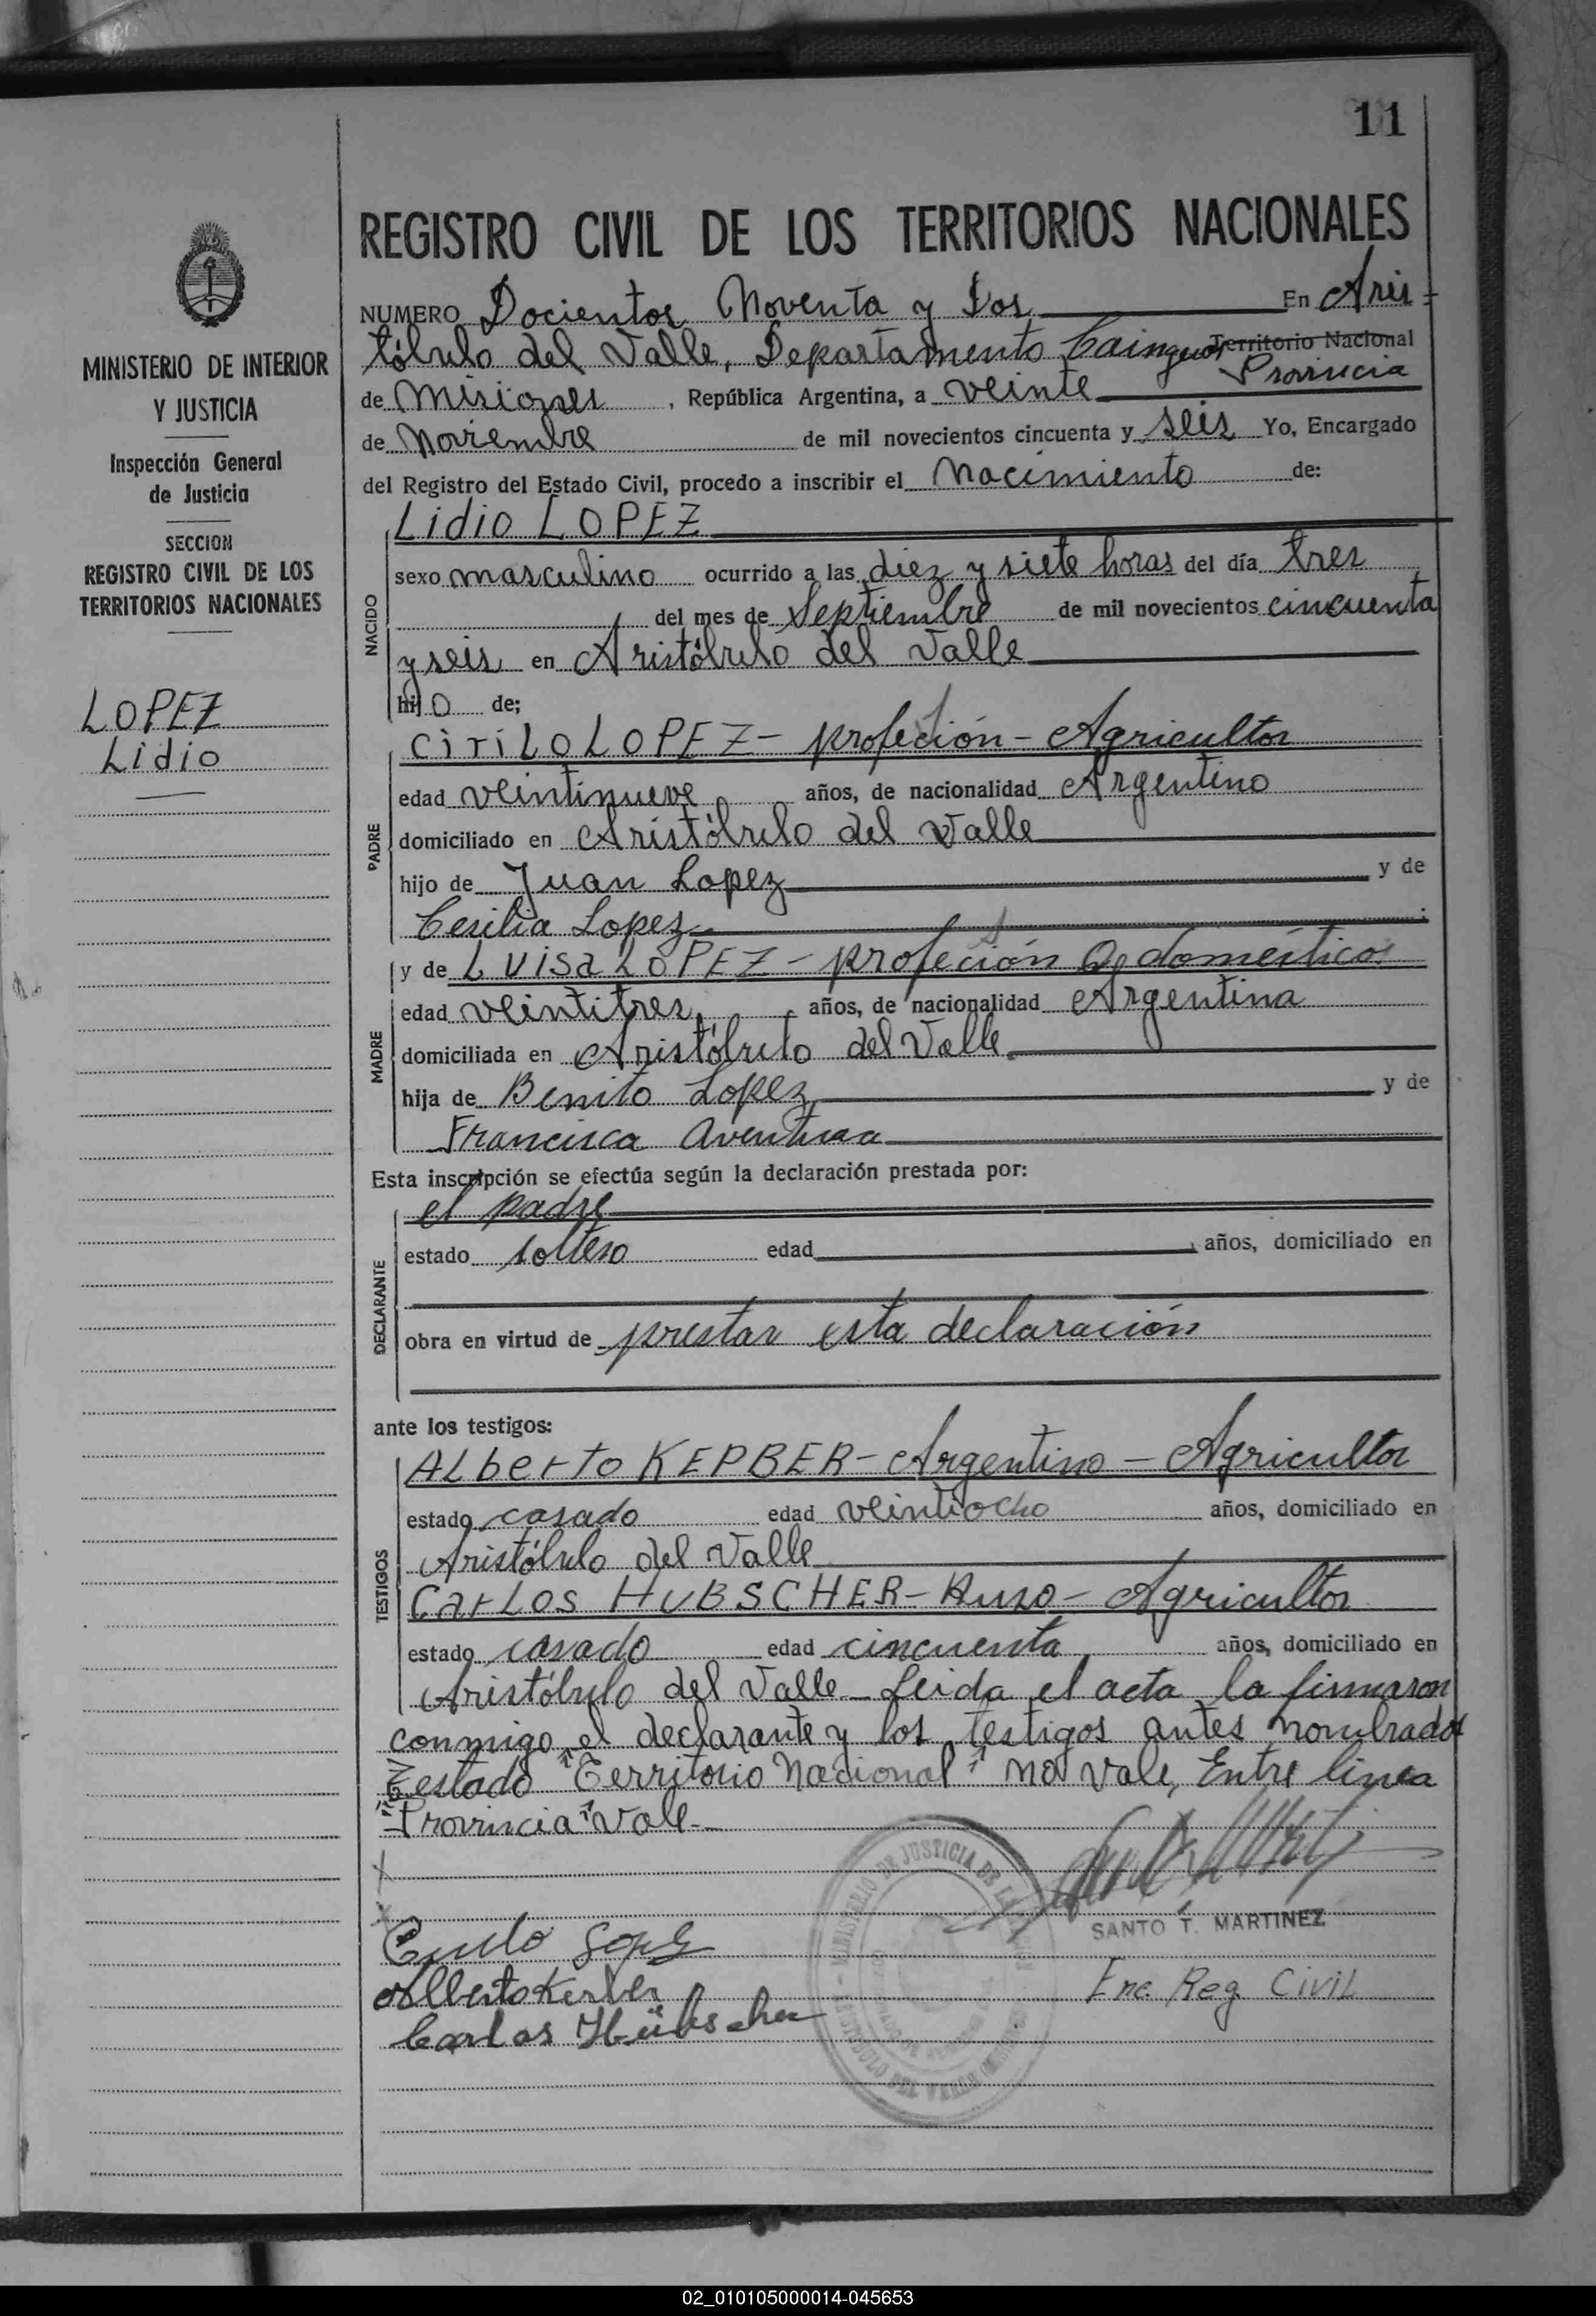 11
MINISTERIO DE INTERIOR
Y JUSTICIA
Inspección General
de Justicia
SECCION
REGISTRO CIVIL DE LOS
TERRITORIOS NACIONALES
LOPEZ
Lidio
REGISTRO CIVIL DE LOS TERRITORIOS NACIONALES
NUMERO Docientos Noventa y Dos En Aris-
tóbulo del Valle, Departamento Cainguas Territorio Nacional
Provincia
de Misiones, República Argentina, a veinte
de Noviembre de mil novecientos cincuenta y seis Yo, Encargado
del Registro del Estado Civil, procedo a inscribir el Nacimiento de:
Lidio LOPEZ
NACIDO
sexo masculino ocurrido a las diez y siete horas del día tres
del mes de Septiembre de mil novecientos cincuenta
y seis en Aristóbulo del Valle
hijo de;
PADRE
CiriLO LOPEZ - profeción - Agricultor
edad veintinueve años, de nacionalidad Argentino
domiciliado en Aristóbulo del Valle
hijo de Juan Lopez y de
Cesilia Lopez
MADRE
y de LUisa LOPEZ - profeción Q. doméstico
edad veintitres años, de nacionalidad Argentina
domiciliada en Aristóbulo del Valle
hija de Benito Lopez y de
Francisca Aventura
Esta inscripción se efectúa según la declaración prestada por:
DECLARANTE
el padre
estado soltero edad años, domiciliado en
obra en virtud de prestar esta declaración
ante los testigos:
TESTIGOS
ALberto KEPBER - Argentino - Agricultor
estado casado edad veintiocho años, domiciliado en
Aristóbulo del Valle
CarLOS HUBSCHER - Ruso - Agricultor
estado casado edad cincuenta años, domiciliado en
Aristóbulo del Valle - Leida el acta la firmaron
conmigo el declarante y los testigos antes nombrados
Testado "Territorio Nacional" no vale, Entre linea
"Provincia" Vale.-
SANTO T. MARTINEZ
Enc. Reg. Civil
Cirilo Lopez
Alberto Kerber
Carlos Hübscher
02_010105000014-045653